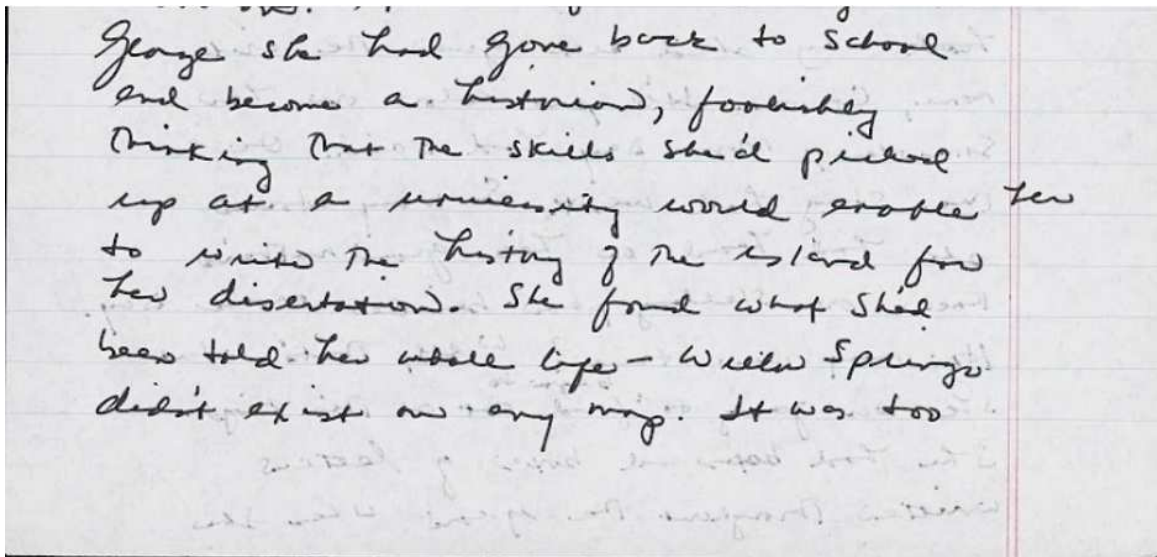 George she had gone back to school
and become a historian, foolishly
thinking that the skills she'd picked
up at a university would enable her
to write the history of the island for
her disertation. She found what she'd
been told her whole life – Willow Springs
didn't exist on any map. It was too